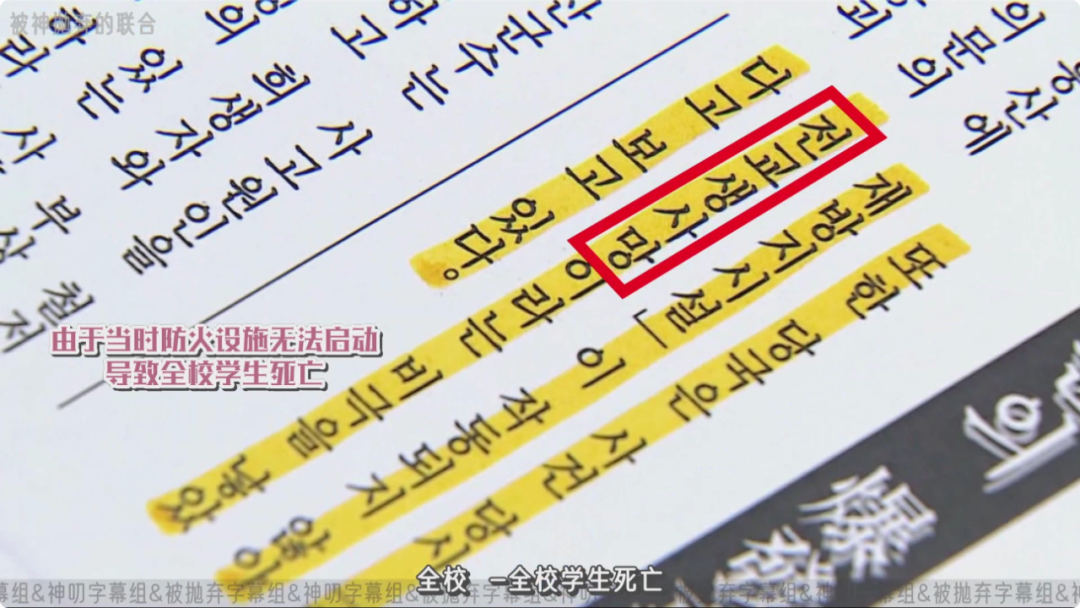 被神抛弃的联合
의 문의
산에
또한 당국은 사건 당시
재방지시설」이 작동되지 않
전교생사망이라는 비극을 낳았
다고 보고 있다.
군수는
하고
사고원인을
희생자와
있는
부상
철저
爆
由于当时防火设施无法启动
导致全校学生死亡
全校 –全校学生死亡
幕组&神叨字幕组&被抛弃字幕组&神叨字幕组&被抛弃字幕组&神叨字幕组&被抛弃字幕组